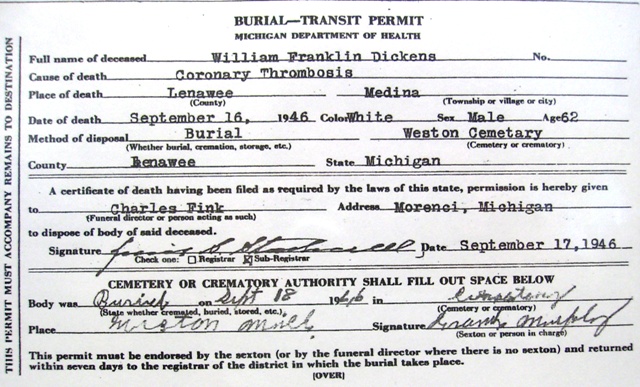 BURIAL—TRANSIT PERMIT
MICHIGAN DEPARTMENT OF HEALTH
Full name of deceased William Franklin Dickens No.
Cause of death Coronary Thrombosis
Place of death Lenawee Medina
(County) (Township or village or city)
Date of death September 16, 1946 Color White Sex Male Age 62
Method of disposal Burial Weston Cemetary
(Whether burial, cremation, storage, etc.) (Cemetery or crematory)
County Lenawee State Michigan
A certificate of death having been filed as required by the laws of this state, permission is hereby given
to Charles Fink Address Morenci, Michigan
(Funeral director or person acting as such)
to dispose of body of said deceased.
Signature Date September 17, 1946
Check one: Registrar Sub-Registrar
CEMETERY OR CREMATORY AUTHORITY SHALL FILL OUT SPACE BELOW
Body was Buried on Sept 18 1946 in
(State whether cremated, buried, stored, etc.) (Cemetery or crematory)
Place Weston Mich Signature Murphy
(Sexton or person in charge)
This permit must be endorsed by the sexton (or by the funeral director where there is no sexton) and returned
within seven days to the registrar of the district in which the burial takes place.
(OVER)
THIS PERMIT MUST ACCOMPANY REMAINS TO DESTINATION